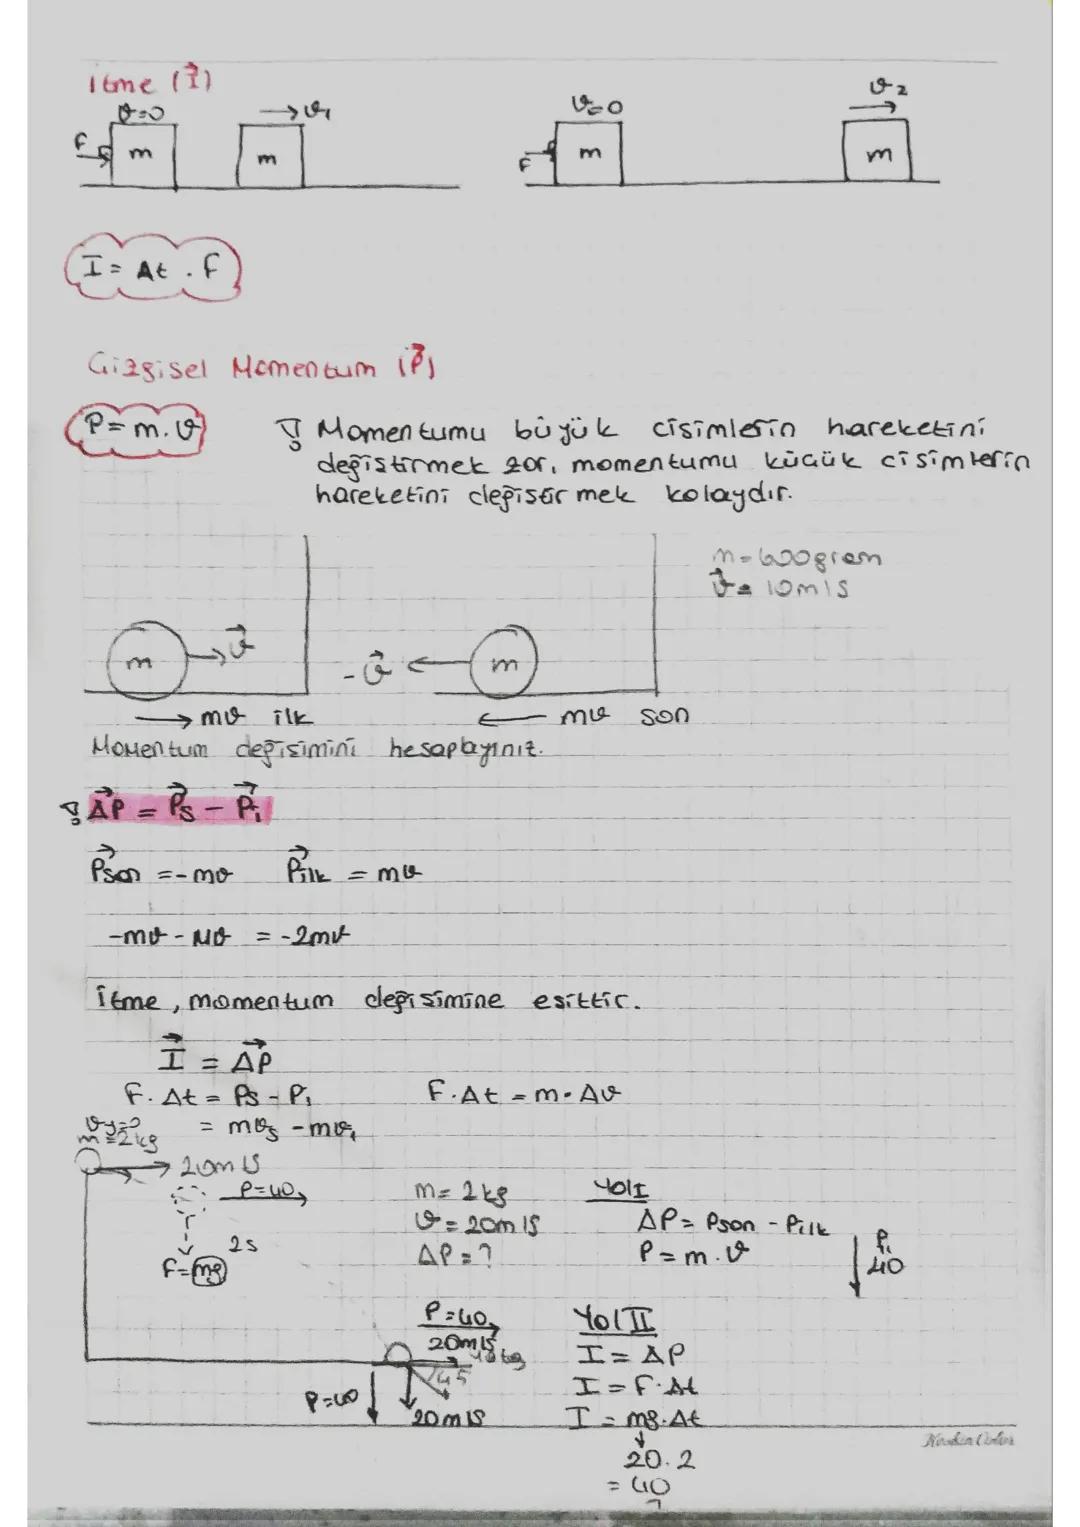 İtme (I⃗)
v=0
v₁
v=0
v₂
F
m
m
F
m
m
I = Δt . F
Çizgisel Momentum (P⃗)
P = m.v
Momentumu büyük cisimlerin hareketini
değiştirmek zor, momentumu küçük cisimlerin
hareketini değiştirmek kolaydır.
m=600gram
v⃗ = 10m/s
m
v⃗
-v⃗
m
mv ilk
mv son
Momentum değişimini hesaplayınız.
ΔP⃗ = P⃗s - P⃗i
P⃗son = -mv P⃗ilk = mv
-mv - mv = -2mv
İtme, momentum değişimine eşittir.
I⃗ = ΔP⃗
F.Δt = Ps - Pi
F.Δt = m.Δv
= mvs - mvi
vy=0
m=2kg
20m/s
P=40
2s
F=mg
m= 2kg
v= 20m/s
ΔP=?
Yol I
ΔP= Pson - Pilk
P= m.v
Pi
40
P=40
20m/s
45
P=40
20m/s
Yol II
I = ΔP
I = F.Δt
I = mg.Δt
20.2
= 40